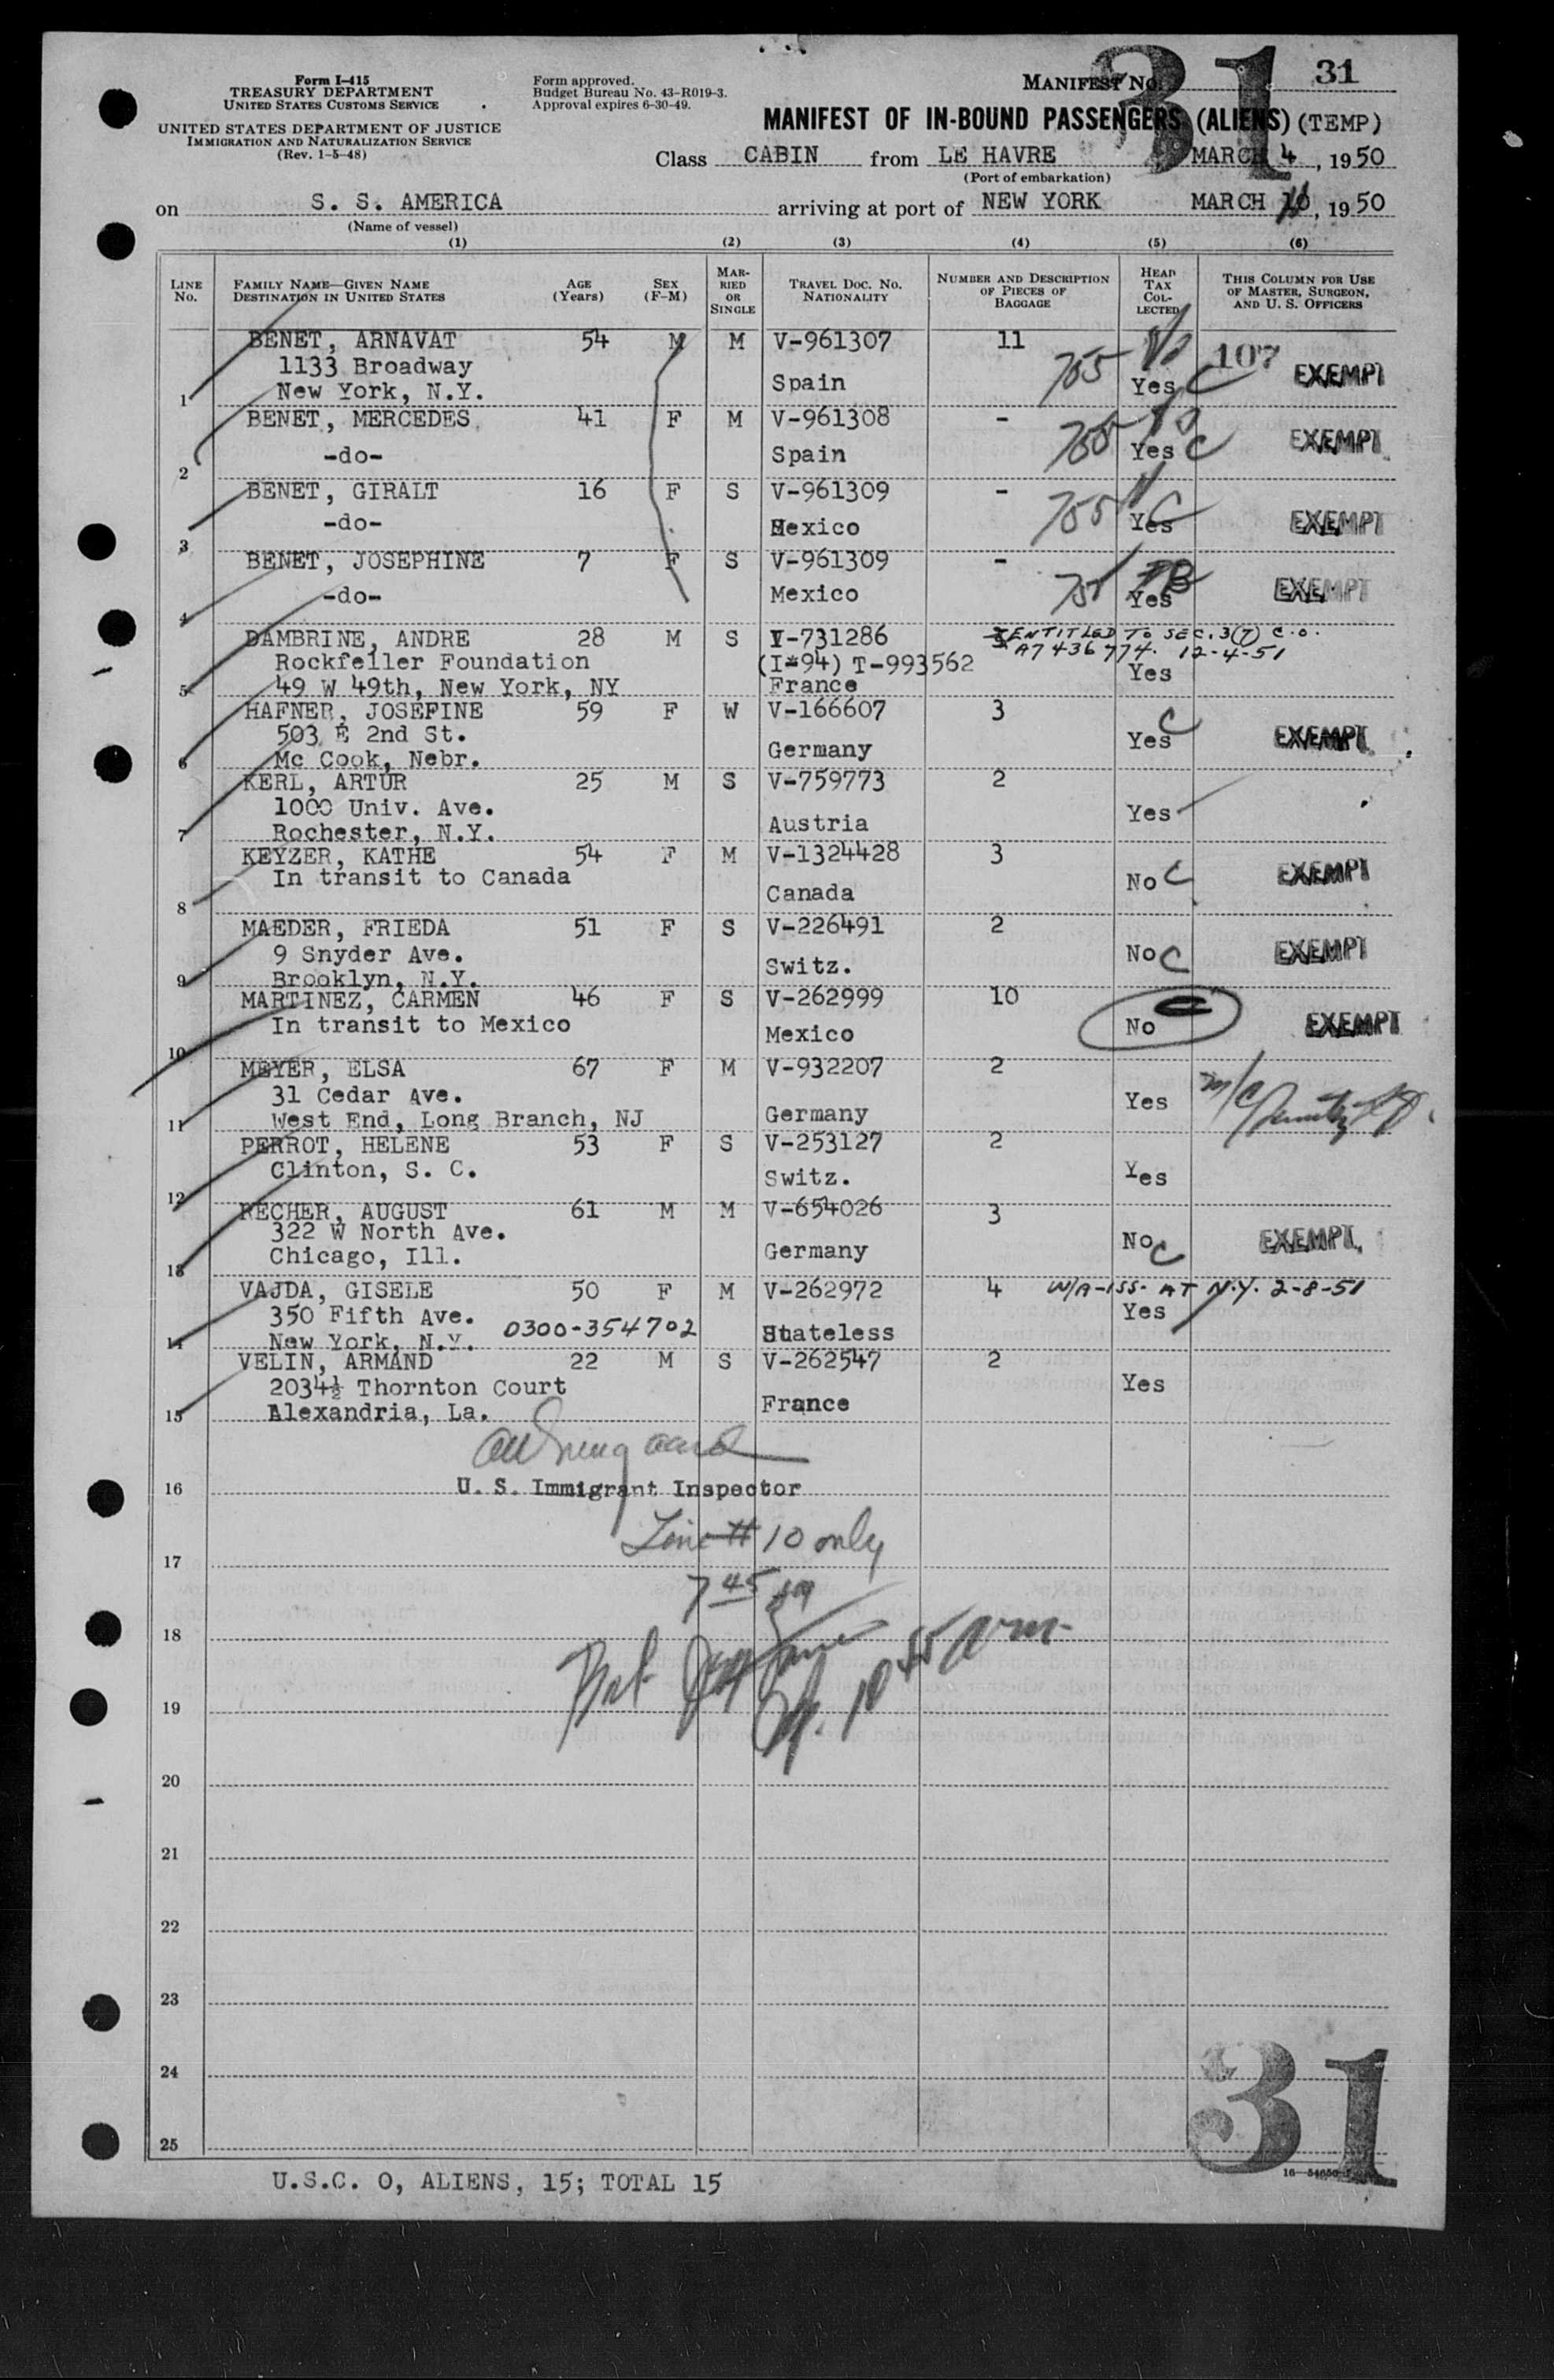 Form I-415
TREASURY DEPARTMENT
UNITED STATES CUSTOMS SERVICE
UNITED STATES DEPARTMENT OF JUSTICE
IMMIGRATION AND NATURALIZATION SERVICE
(Rev. 1-5-48)
Form approved.
Budget Bureau No. 43-R019-3.
Approval expires 6-30-49.
31
MANIFEST No. 31
MANIFEST OF IN-BOUND PASSENGERS (ALIENS) (TEMP)
Class CABIN from LE HAVRE MARCH 4, 1950
(Port of embarkation)
on S. S. AMERICA arriving at port of NEW YORK MARCH , 1950
(Name of vessel)
(1) (2) (3) (4) (5) (6)
LINE No. FAMILY NAME—GIVEN NAME DESTINATION IN UNITED STATES AGE (Years) SEX (F-M) MARRIED OR SINGLE TRAVEL DOC. No. NATIONALITY NUMBER AND DESCRIPTION OF PIECES OF BAGGAGE HEAD TAX COLLECTED THIS COLUMN FOR USE OF MASTER, SURGEON, AND U. S. OFFICERS
BENET, ARNAVAT 54 M M V-961307 11 107
1133 Broadway
1 New York, N.Y. Spain 755 Yes C EXEMPT
BENET, MERCEDES 41 F M V-961308 -
2 -do- Spain 755 Yes C EXEMPT
BENET, GIRALT 16 F S V-961309 -
3 -do- Mexico 755 Yes C EXEMPT
BENET, JOSEPHINE 7 F S V-961309 -
4 -do- Mexico Yes EXEMPT
DAMBRINE, ANDRE 28 M S V-731286 ENTITLED TO SEC. 3(7) C.O.
Rockfeller Foundation (I-94) T-993562 A7 436 774. 12-4-51
5 49 W 49th, New York, NY France Yes
HAFNER, JOSEFINE 59 F W V-166607 3
503 E 2nd St.
6 Mc Cook, Nebr. Germany Yes C EXEMPT
KERL, ARTUR 25 M S V-759773 2
1000 Univ. Ave.
7 Rochester, N.Y. Austria Yes
KEYZER, KATHE 54 F M V-1324428 3
In transit to Canada
8 Canada No C EXEMPT
MAEDER, FRIEDA 51 F S V-226491 2
9 Snyder Ave.
9 Brooklyn, N.Y. Switz. No C EXEMPT
MARTINEZ, CARMEN 46 F S V-262999 10
In transit to Mexico
10 Mexico No C EXEMPT
MEYER, ELSA 67 F M V-932207 2
31 Cedar Ave.
11 West End, Long Branch, NJ Germany Yes
PERROT, HELENE 53 F S V-253127 2
Clinton, S. C.
12 Switz. Yes
RECHER, AUGUST 61 M M V-654026 3
322 W North Ave.
13 Chicago, Ill. Germany No C EXEMPT
VAJDA, GISELE 50 F M V-262972 4 W/A-ISS. AT N.Y. 2-8-51
350 Fifth Ave. Yes
14 New York, N.Y. 0300-354702 Stateless
VELIN, ARMAND 22 M S V-262547 2
2034½ Thornton Court Yes
15 Alexandria, La. France
16 U. S. Immigrant Inspector
Line # 10 only
17
7 45
18
19
20
21
22
23
24
25
31
U.S.C. 0, ALIENS, 15; TOTAL 15